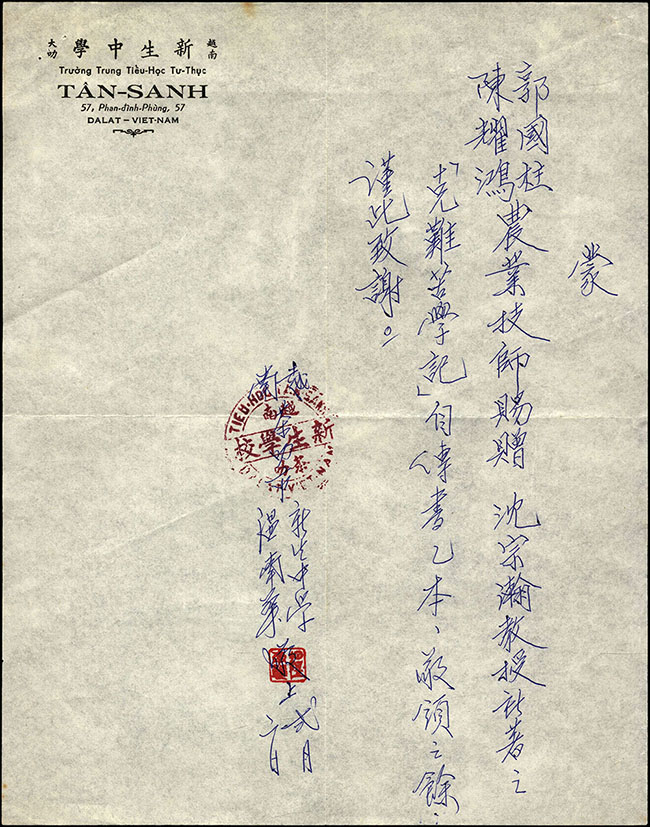 越南 新生中學 大叻
Trường Trung Tiểu-Học Tư-Thục
TÂN-SANH
57, Phan-đình-Phùng, 57
DALAT – VIET-NAM
蒙
郭國柱
陳耀鴻農業技師賜贈 沈宗瀚教授所著之
「克難苦學記」自傳書乙本、敬領之餘、
謹此致謝。
越南
新生中学
敬上
貳月
日
TIEU-HOC
越南
新生學校
VIETNAM